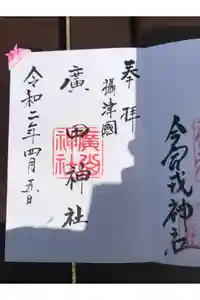 奉拝
攝津國
廣田神社
廣田
神社
令和二年四月五日
今宮戎神社